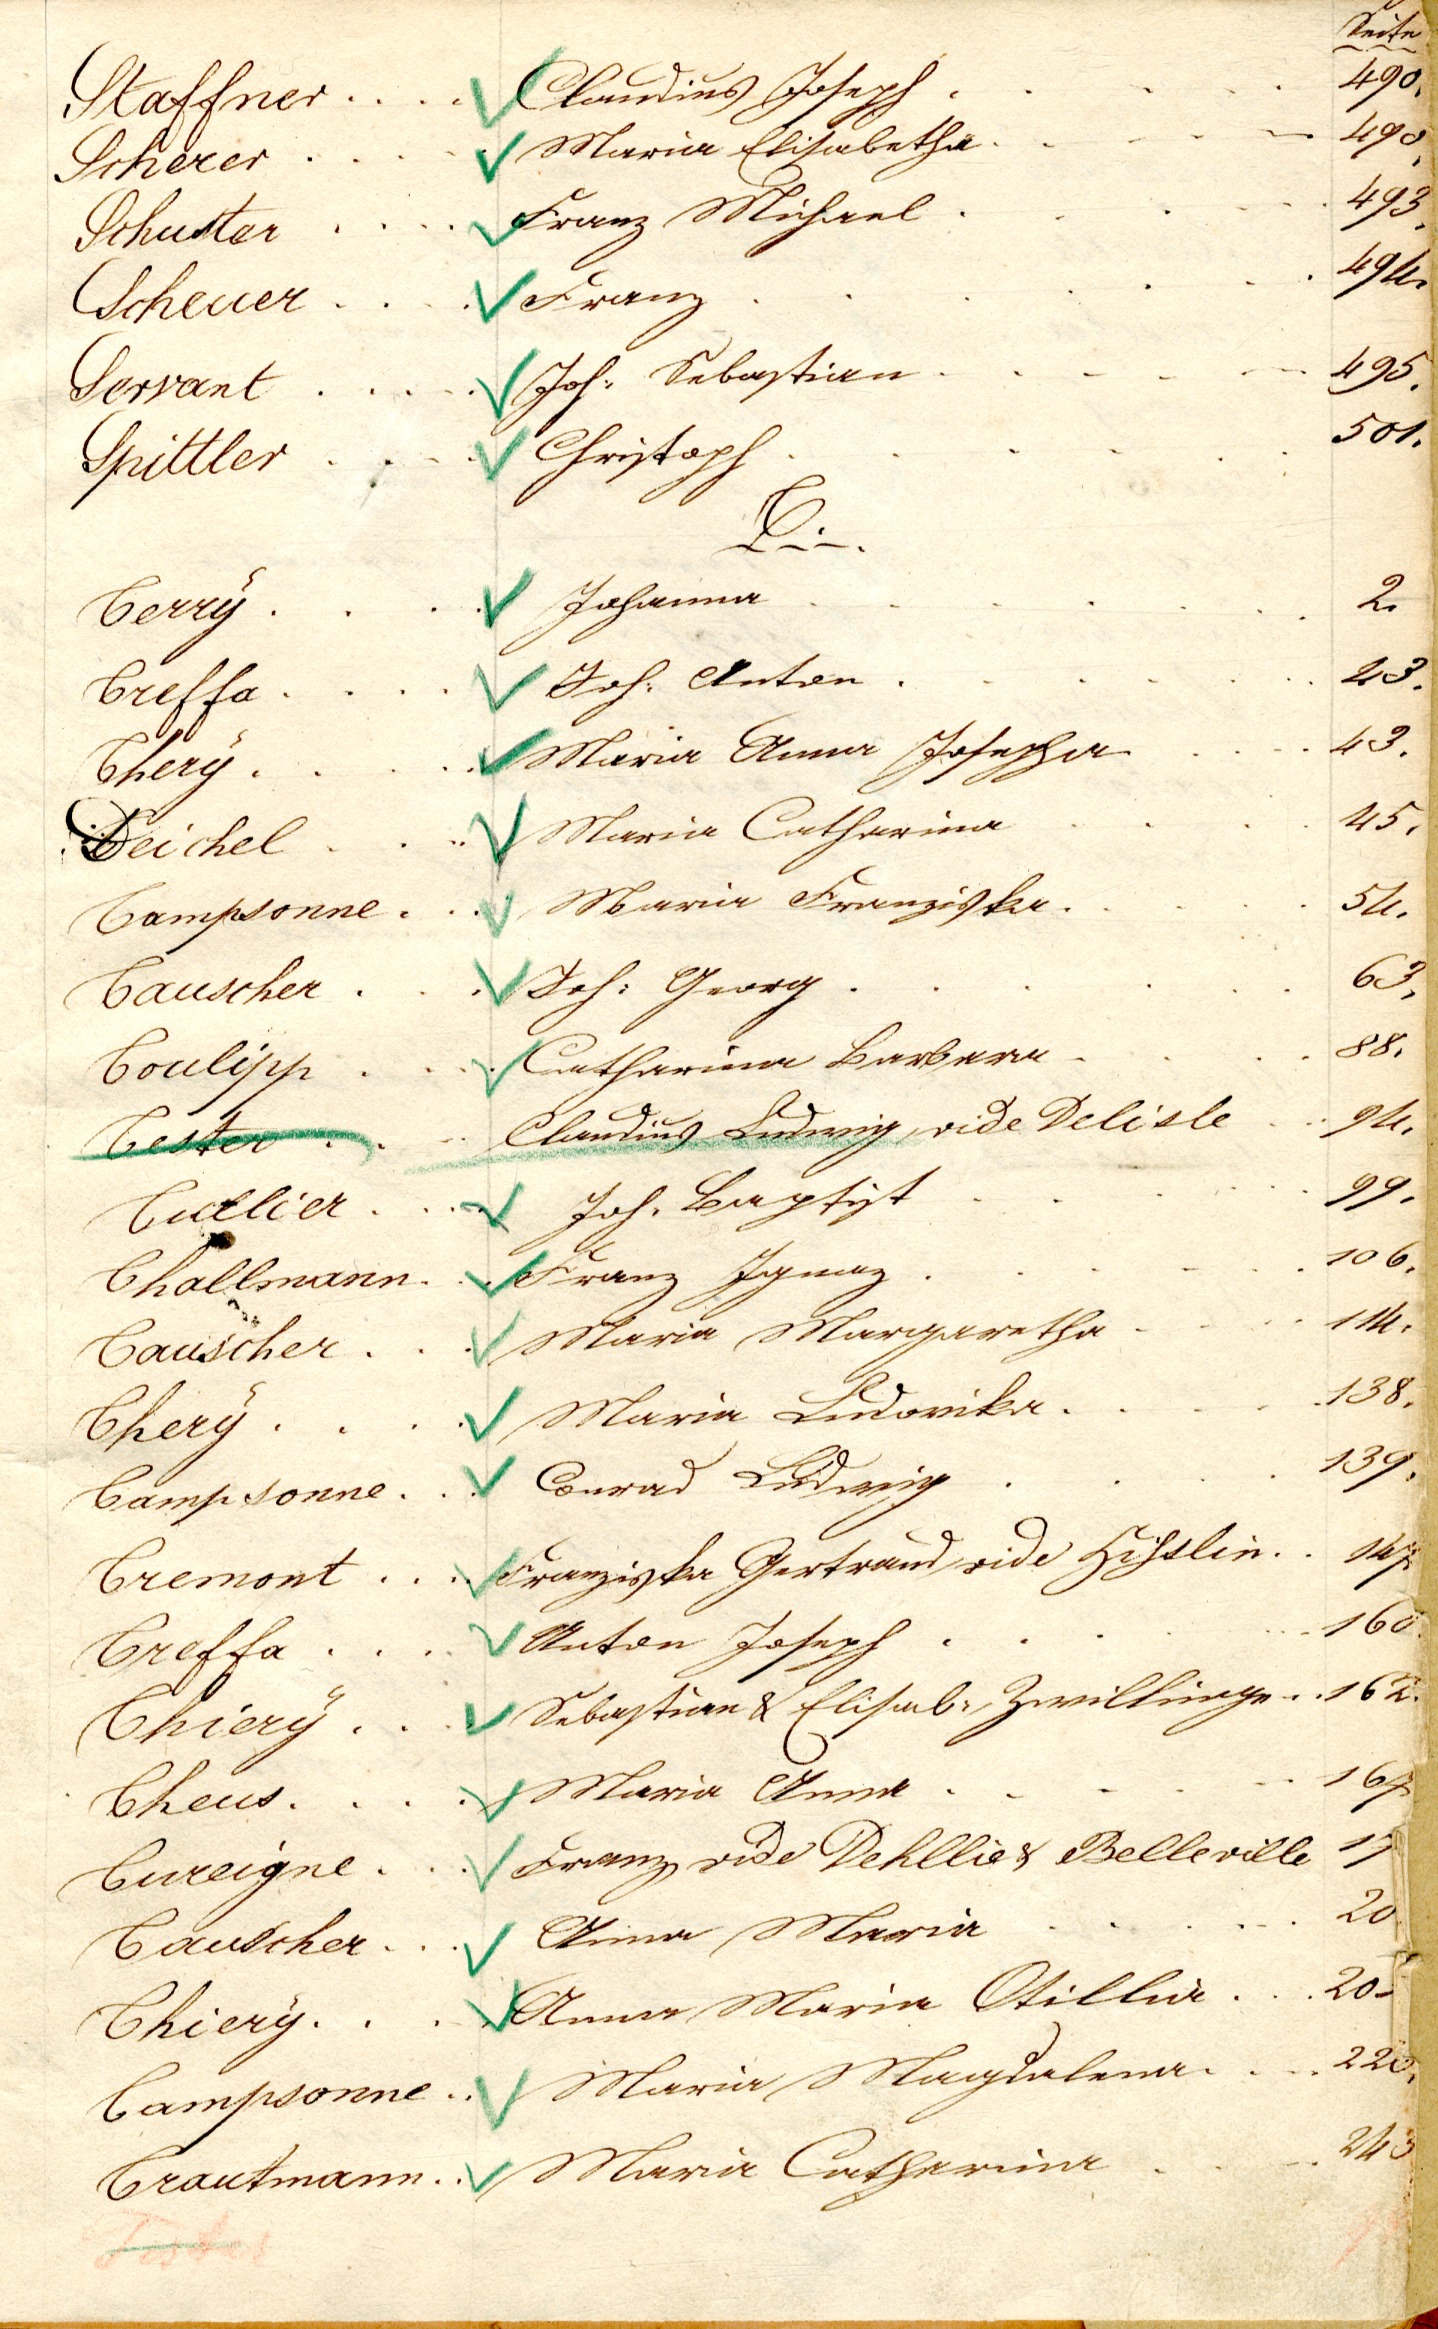 Seite
Staffner .... Claudius Joseph . 490.
Scherer .... Maria Elisabetha . 490.
Schuster .... Franz Michael . 493.
Scheuer .... Franz . 494.
Servant .... Joh: Sebastian . 495.
Spittler .... Christoph . 501.
T.
Terrÿ .... Johanna . 2.
Treffa .... Joh: Anton . 43.
Therÿ .... Maria Anna Josepha . 43.
Deichel .... Maria Catharina . 45.
Tampsonne .... Maria Franziska . 54.
Tauscher .... Joh: Georg . 63.
Toulipp .... Catharina Barbara . 88.
Tester .... Claudius Ludwig, vide Delisle . 94.
Tutlier .... Joh. Baptist . 99.
Thallmann .... Franz Ignaz . 106.
Tauscher .... Maria Margaretha . 114.
Therÿ .... Maria Ludovika . 138.
Tampsonne .... Conrad Ludwig . 139.
Tremont .... Franziska Gertraud, vide . 147.
Treffa .... Anton Joseph . 160.
Thierÿ .... Sebastian & Elisab: Zwillinge . 162.
Theus .... Maria Anna . 167.
Tureigne .... Franz, vide Dehllie & Belleville
Tauscher .... Anna Maria . 20
Thierÿ .... Anna Maria Otillia . 20
Tampsonne .... Maria Magdalena . 220.
Trautmann .... Maria Catharina . 243
Tester